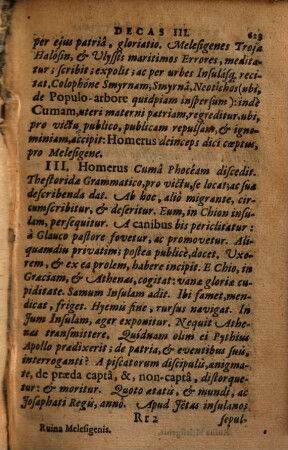 DECAS III.
629
per ejus patriã, gloriatio. Melesigenes Trojæ
Halôsin, & Ulyssis maritimos Errores, medita-
tur; scribit; expolit; ac per urbes Insulásq; reci-
tat, Colophône Smyrnam, Smyrnâ, Neotichos (ubi,
de Populo-arbore quidpiam inspersum): indè
Cumam, uteri materni patriam, regreditur. ubi,
pro victu publico, publicam repulsam, & igno-
miniam, accipit: Homerus deinceps dici cœptus,
pro Melesigene.
III. Homerus Cumâ Phocéam discedit.
Thestoridæ Grammatico, pro victu, se locat; ac sua
describenda dat. Ab hoc, aliò migrante, cir-
cumscribitur, & deseritur. Eum, in Chion insu-
lam, persequitur. A canibus bis periclitatur:
à Glauco pastore fovetur, ac promovetur. Ali-
quamdiu privatim; postea publicè, docet. Uxo-
rem, & ex ea prolem, habere incipit. E Chio, in
Græciam, & Athenas, cogitat: vana gloriæ cu-
piditate. Samum Insulam adit. Ibi famet, men-
dicat, friget. Hyemis fine, rursus navigat. In
Jum Insulam, æger exponitur. Nequit Athe-
nas transmittere. Quidnam olim ei Pythius
Apollo prædixerit; de patria, & eventibus suis,
interroganti? A piscatorum discipuli, ænigma-
te, de præda captâ, &, non-captâ, distorque-
tur: & moritur. Quoto ætatis, & mundi, ac
Josaphati Regis, anno. Apud Jêtas insulanos
Rr2
sepul-
Ruina Melesigenis.